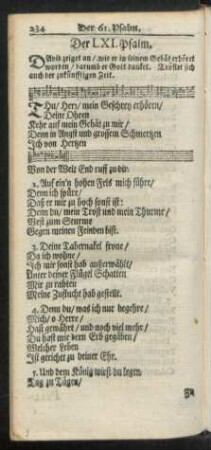 234 Der 61. Psalm.
Der LXI. Psalm.
DAvid zeiget an / wie er in seinem Gebät erhöret
worden / darumb er Gott dancket. Tröstet sich
auch der zukünfftigen Zeit.
THu / Herr / mein Geschrey erhören /
Deine Ohren
Kehr auf mein Gebät zu mir /
Denn in Angst und grossem Schmertzen
Ich von Hertzen
Von der Welt End ruff zu dir.
2. Auf ein'n hohen Fels mich führe /
Denn ich spüre /
Daß er mir zu hoch sonst ist:
Denn du / mein Trost und mein Thurme /
Vest zum Sturme
Gegen meinen Feinden bist.
3. Deine Tabernakel frone /
Da ich wohne /
Ich mir sonst hab außerwählt /
Unter deiner Flügel Schatten
Mir zu rahten
Meine Zuflucht hab gestellt.
4. Denn du / was ich nur begehre /
Mich / o Herre /
Hast gewähret / und noch viel mehr /
Du hast mir dem Erb gegeben /
Welcher Leben
Ist gericht zu deiner Ehr.
5. Und dem König wirst du legen
Tag zu Tägen /